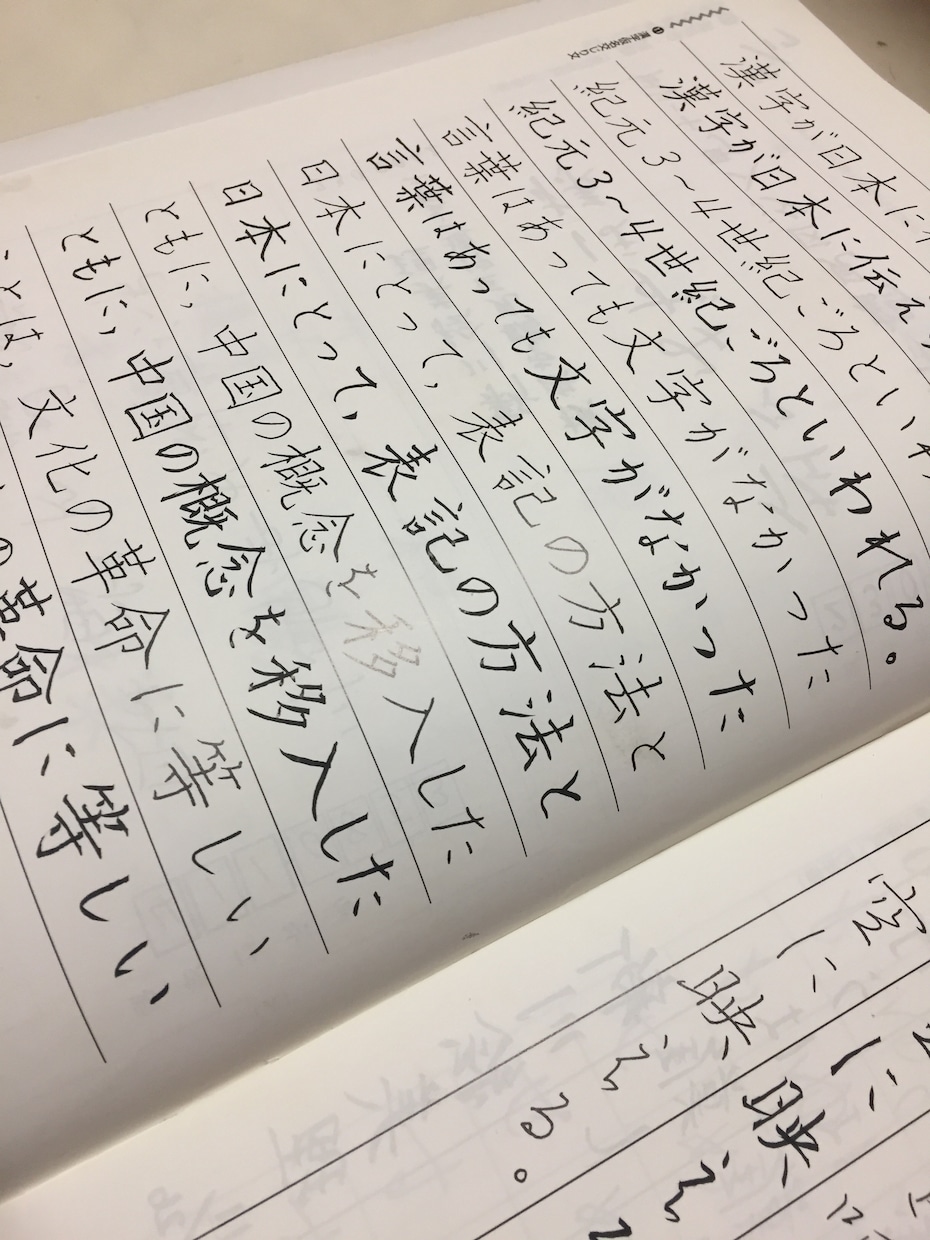 漢字仮名交じり文
漢字が日本に
漢字が日本に伝え
紀元3〜4世紀ごろといわ
紀元3〜4世紀ごろといわれる。
言葉はあっても文字がなかった
言葉はあっても文字がなかった
日本にとって、表記の方法と
日本にとって、表記の方法と
ともに、中国の概念を移入した
ともに、中国の概念を移入した
とは、文化の革命に等しい
の革命に等しい
空に映える。
に映え